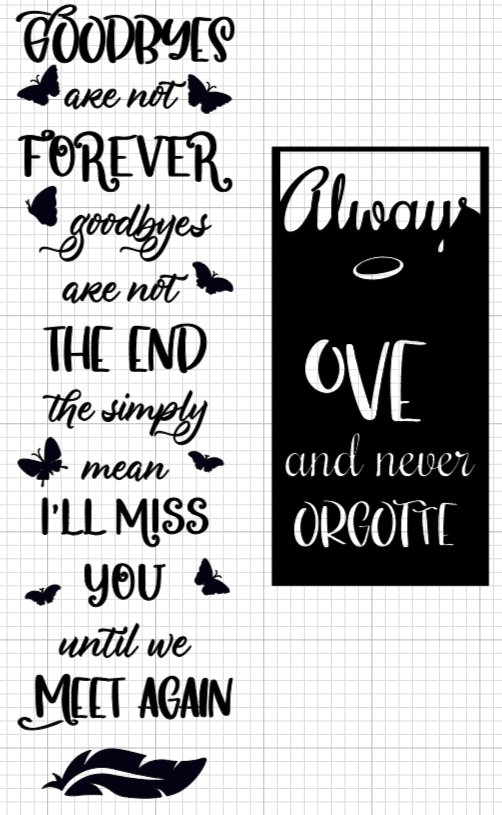 GOODBYES
are not
FOREVER,
goodbyes
are not
THE END
the simply
mean
I'LL MISS
YOU
until we
MEET AGAIN
Always
OVE
and never
ORGOTTE